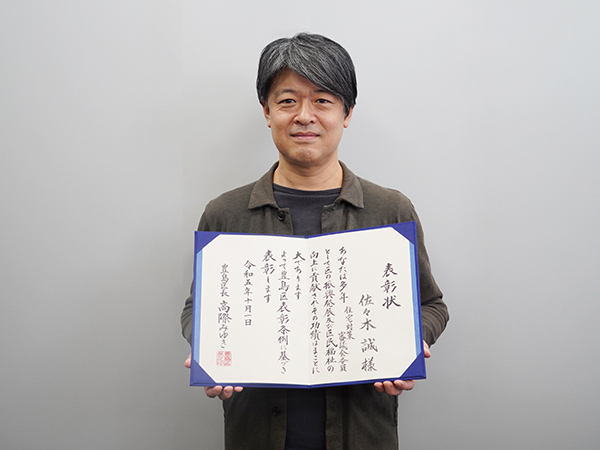 表彰状
佐々木誠様
あなたは多年住宅対策審議会委員
として区の振興発展及び区民福祉の
向上に貢献されその功績はまことに
大であります
よって豊島区表彰条例に基づき
表彰します
令和五年十月一日
豊島区長 高際みゆき